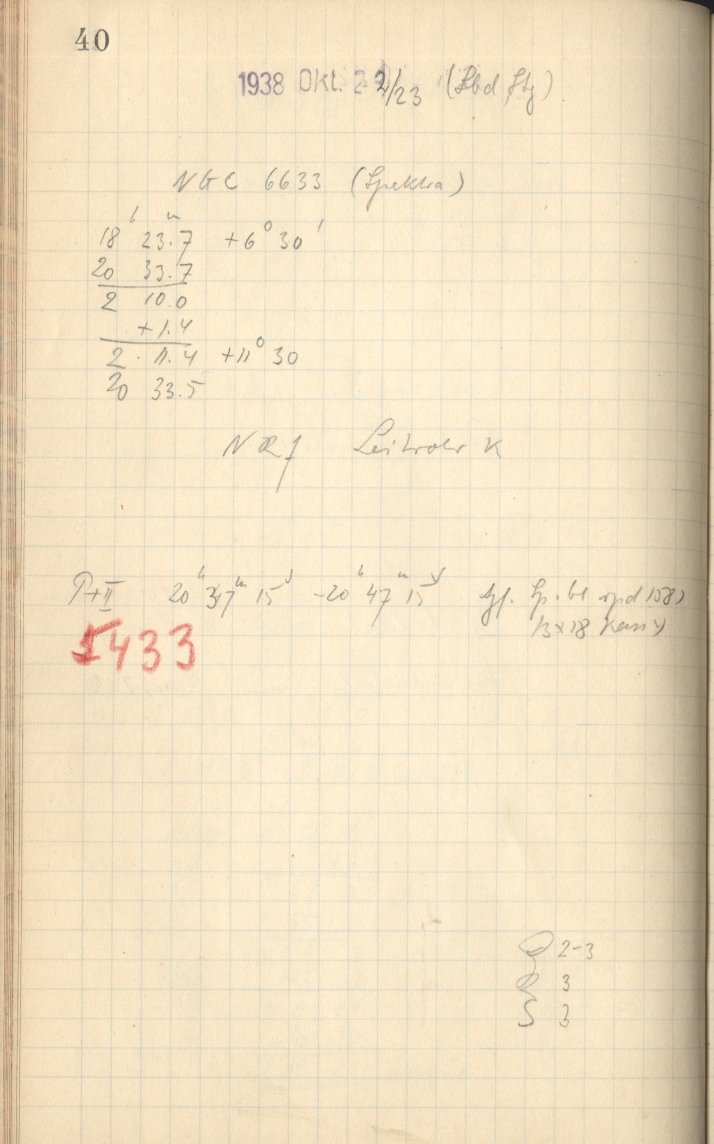 40
1938 Okt. 22/23
NGC 6633 (Spektra)
18 h 23.7 m +6° 30'
20 33.7
2 10.0
+1.4
2 11.4 +11° 30
20 33.5
Leitrohr K
P+II 20h 37m 15s -20h 47m 15s
5433
2-3
3
S 3